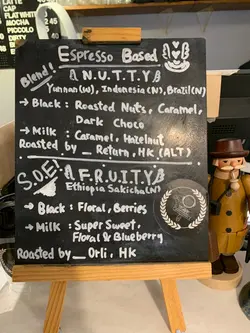 LATTE
CAP
FLATWHIT
MOCHA
PICCOLO
DIRTY
Espresso Based
Blend!
NUTTY
Yunnan(W), Indonesia(N), Brazil(N)
→ Black: Roasted Nuts, Caramel,
Dark Choco
→ Milk : Caramel, Hazelnut
Roasted by _ Return, HK (ALT)
S.O.E.
FRUITY
Ethiopia Sakicha(N)
→ Black: Floral, Berries
→ Milk : Super Sweet,
Floral & Blueberry
Roasted by _ OHi, HK